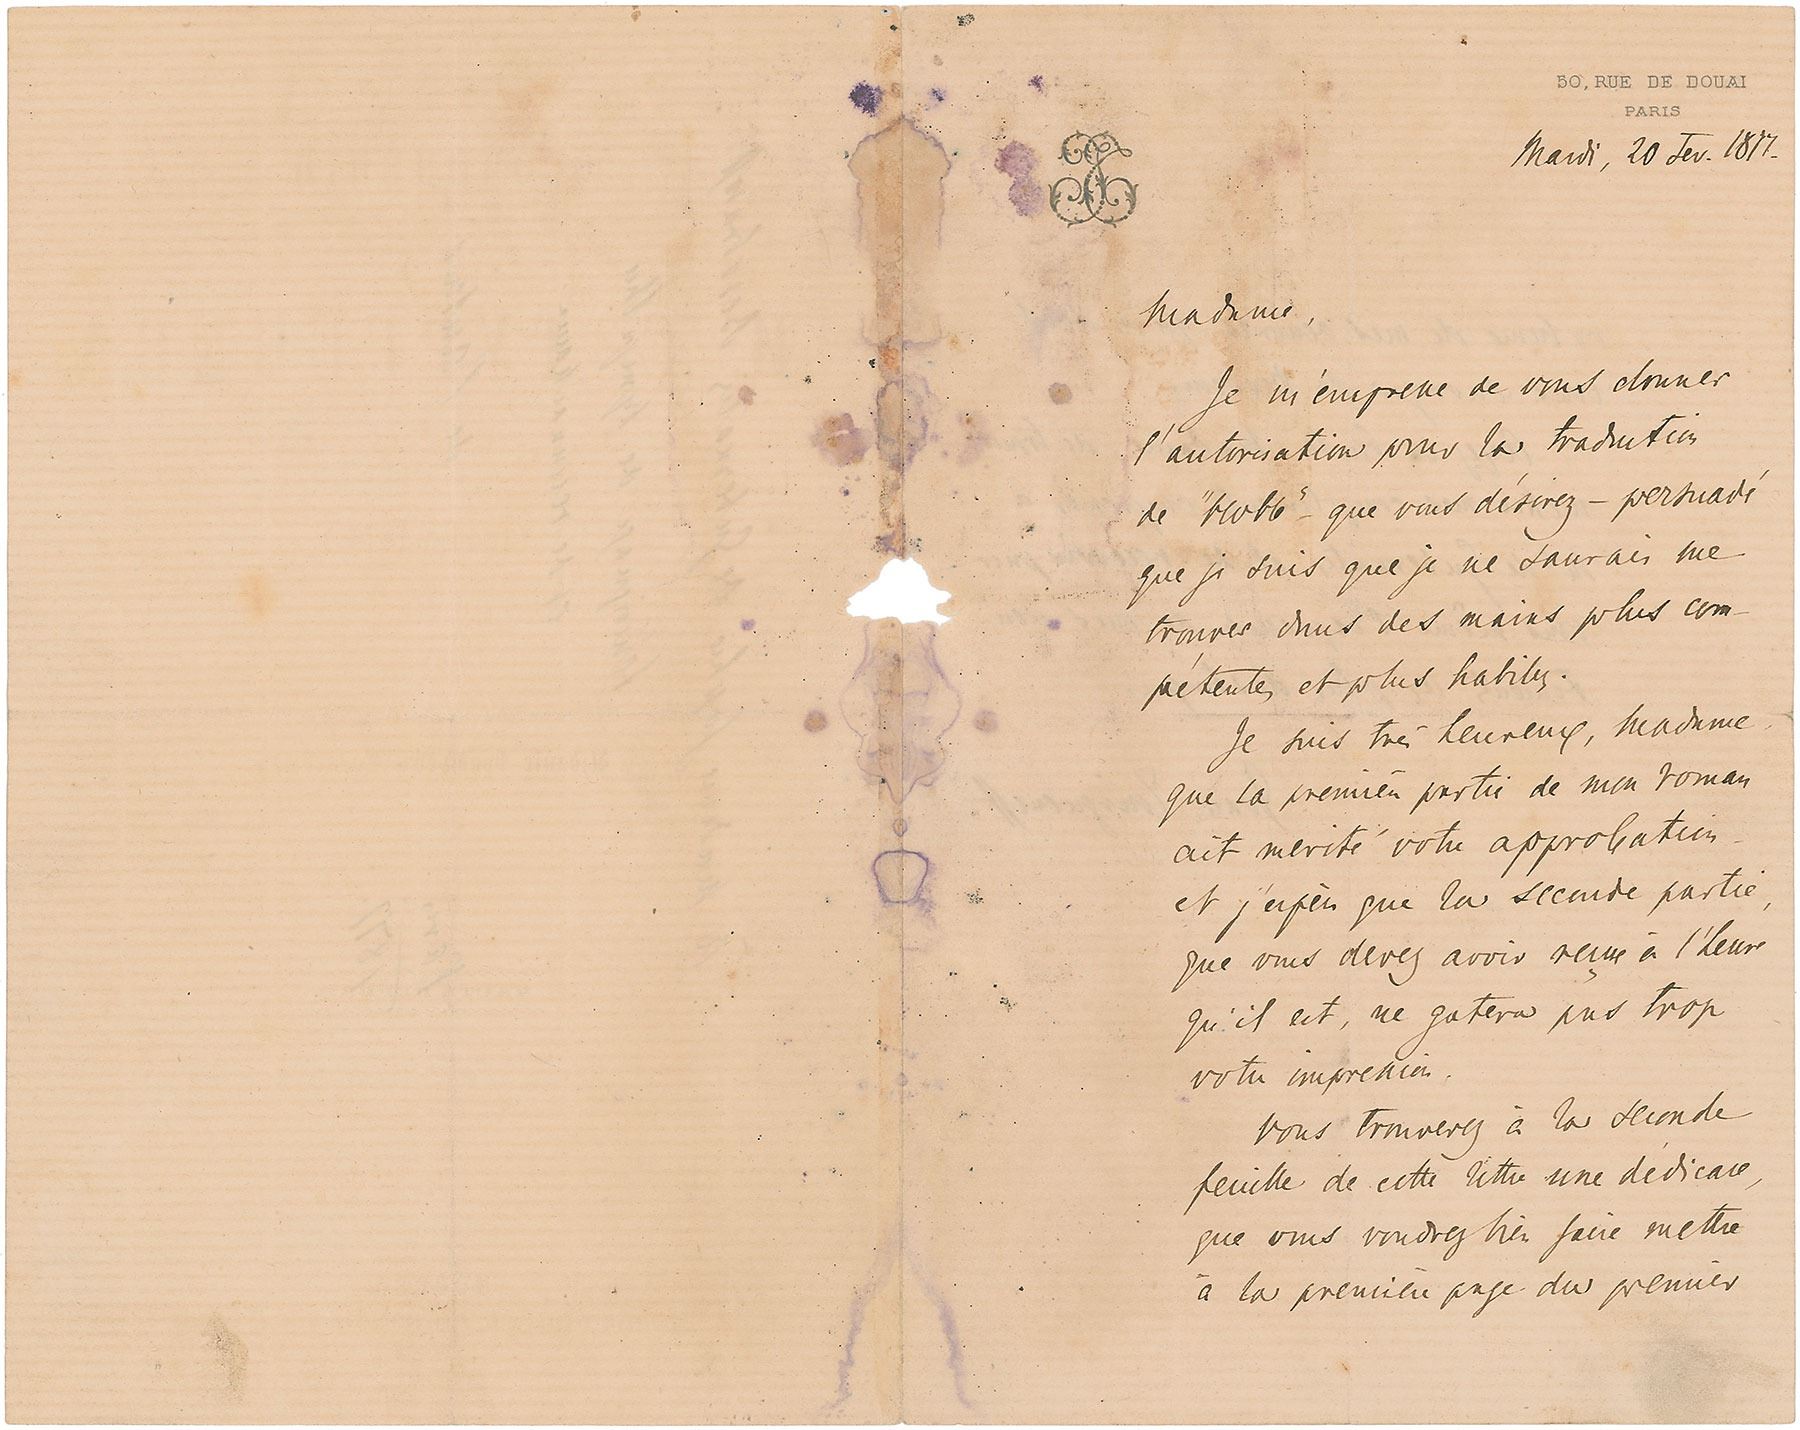 50, RUE DE DOUAI
PARIS
Mardi, 20 Fev. 1877.
Madame,
Je m'empresse de vous donner
l'autorisation pour la traduction
de "Новь" – que vous désirez – persuadé
que je suis que je ne saurais me
trouver dans des mains plus com-
pétentes et plus habiles.
Je suis très heureux, Madame
que la première partie de mon roman
ait mérité votre approbation –
et j'espère que la seconde partie,
que vous devez avoir reçue à l'heure
qu'il est, ne gatera pas trop
votre impression.
Vous trouverez à la seconde
feuille de cette lettre une dédicace,
que vous voudrez bien faire mettre
à la première page du premier